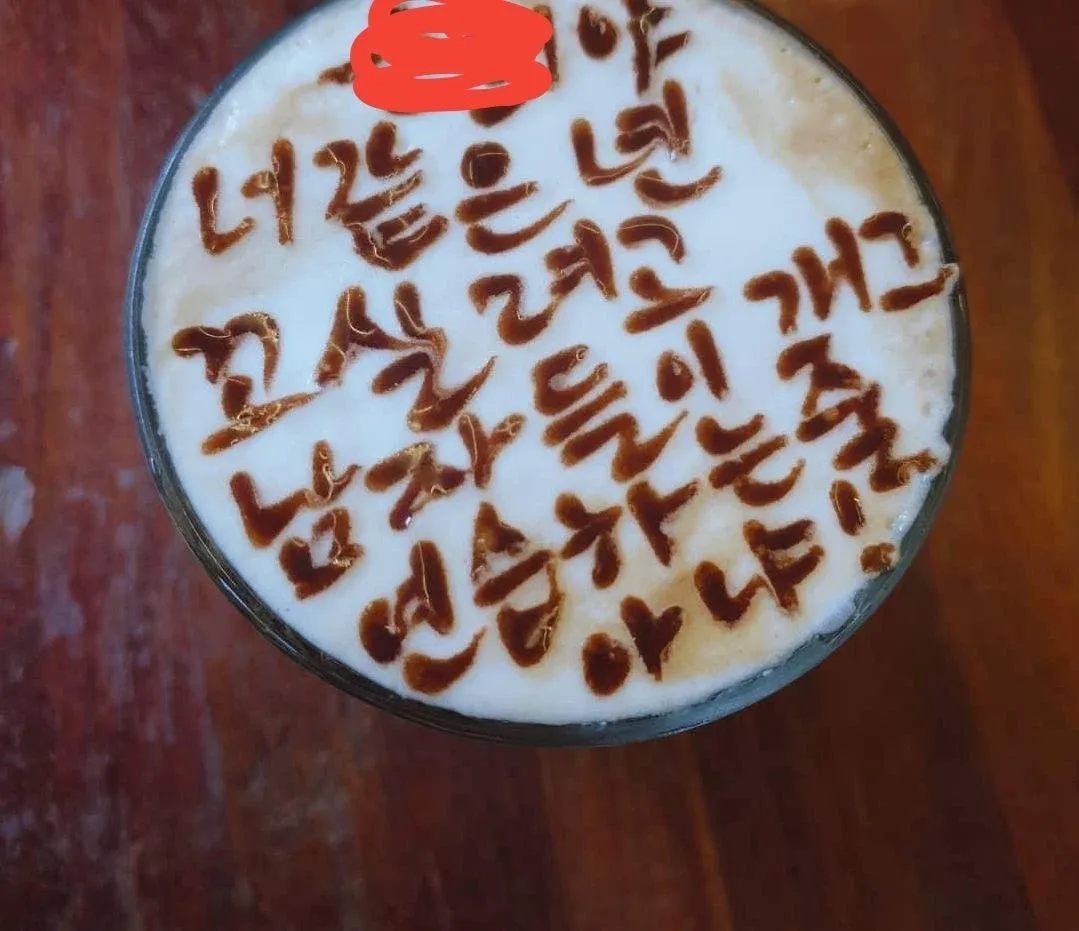 야
너같은 년
꼬실려고 개그
남자들이
연습하는줄
아냐!